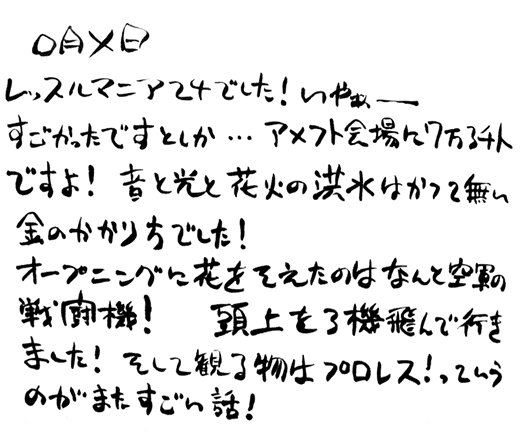 〇月×日
レッスルマニア24でした！いやぁー
すごかったですとしか…アメフト会場に7万3千人
ですよ！音と光と花火の洪水はかつて無い
金のかかり方でした！
オープニングに花をそえたのはなんと空軍の
戦闘機！頭上を3機飛んで行き
ました！そして観る物はプロレス！っていう
のがまたすごい話！